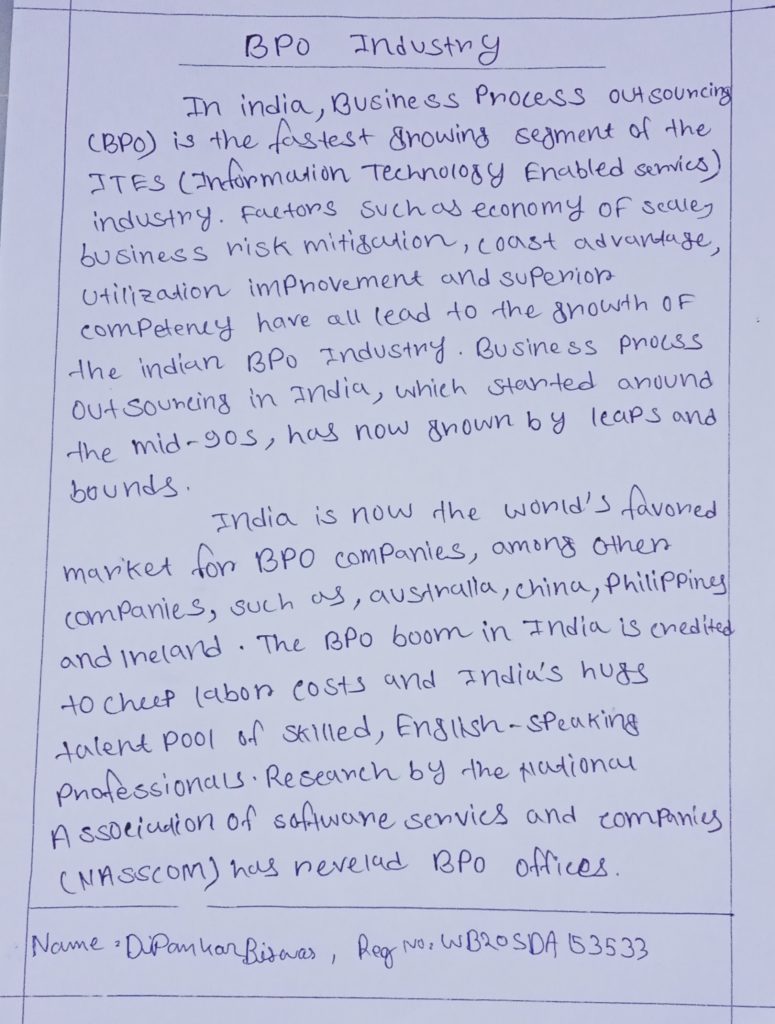 BPO Industry
In india, Business Process outsourcing
(BPO) is the fastest growing segment of the
ITES (Information Technology Enabled servics)
industry. Factors such as economy of scale,
business risk mitigation, coast advantage,
utilization improvement and superior
competency have all lead to the growth of
the indian BPO Industry. Business process
outsourcing in India, which started around
the mid-90s, has now grown by leaps and
bounds.
India is now the world's favored
market for BPO companies, among other
companies, such as, australla, china, Philippines
and ireland. The BPO boom in India is credited
to cheep labor costs and India's hugs
talent pool of skilled, English-speaking
professionals. Research by the National
Association of software servics and companies
(NASSCOM) has revelad BPO offices.
Name : Dipankar Biswas, Reg No. WB20SDA153533